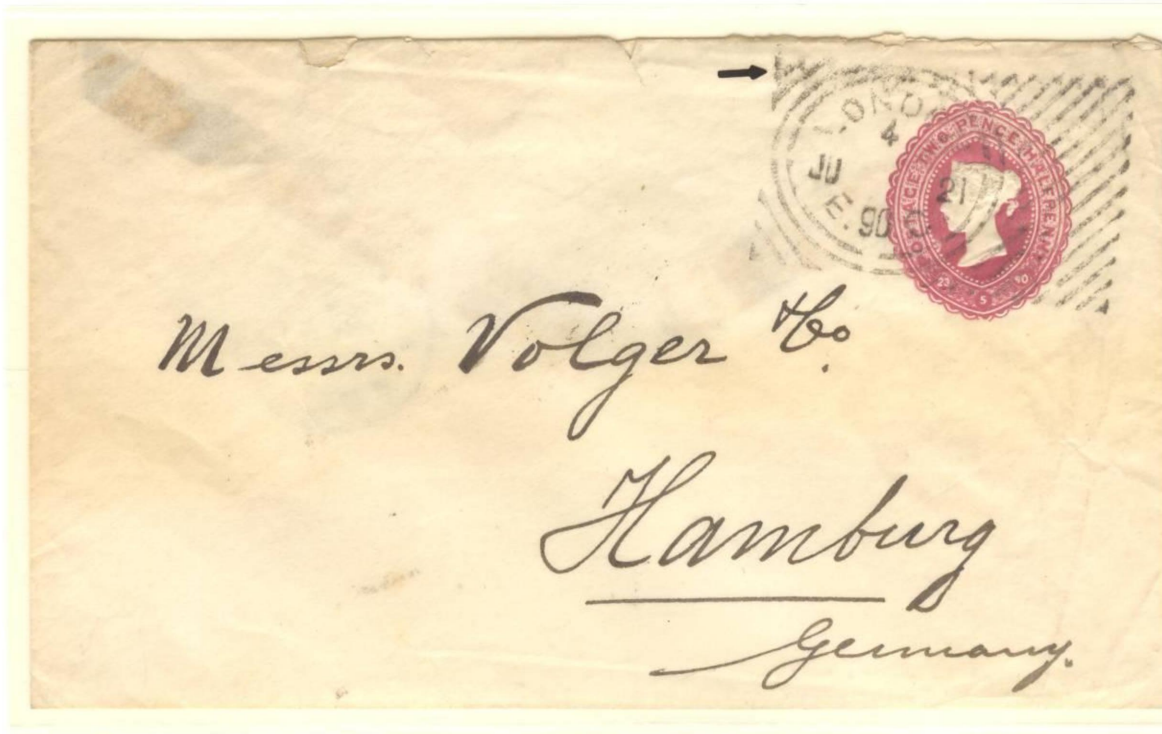 LONDON
4
JU 21
E. 90
POSTAGE TWO PENCE HALFPENNY
23 5 90
Messrs. Volger & Co.
Hamburg
Germany.